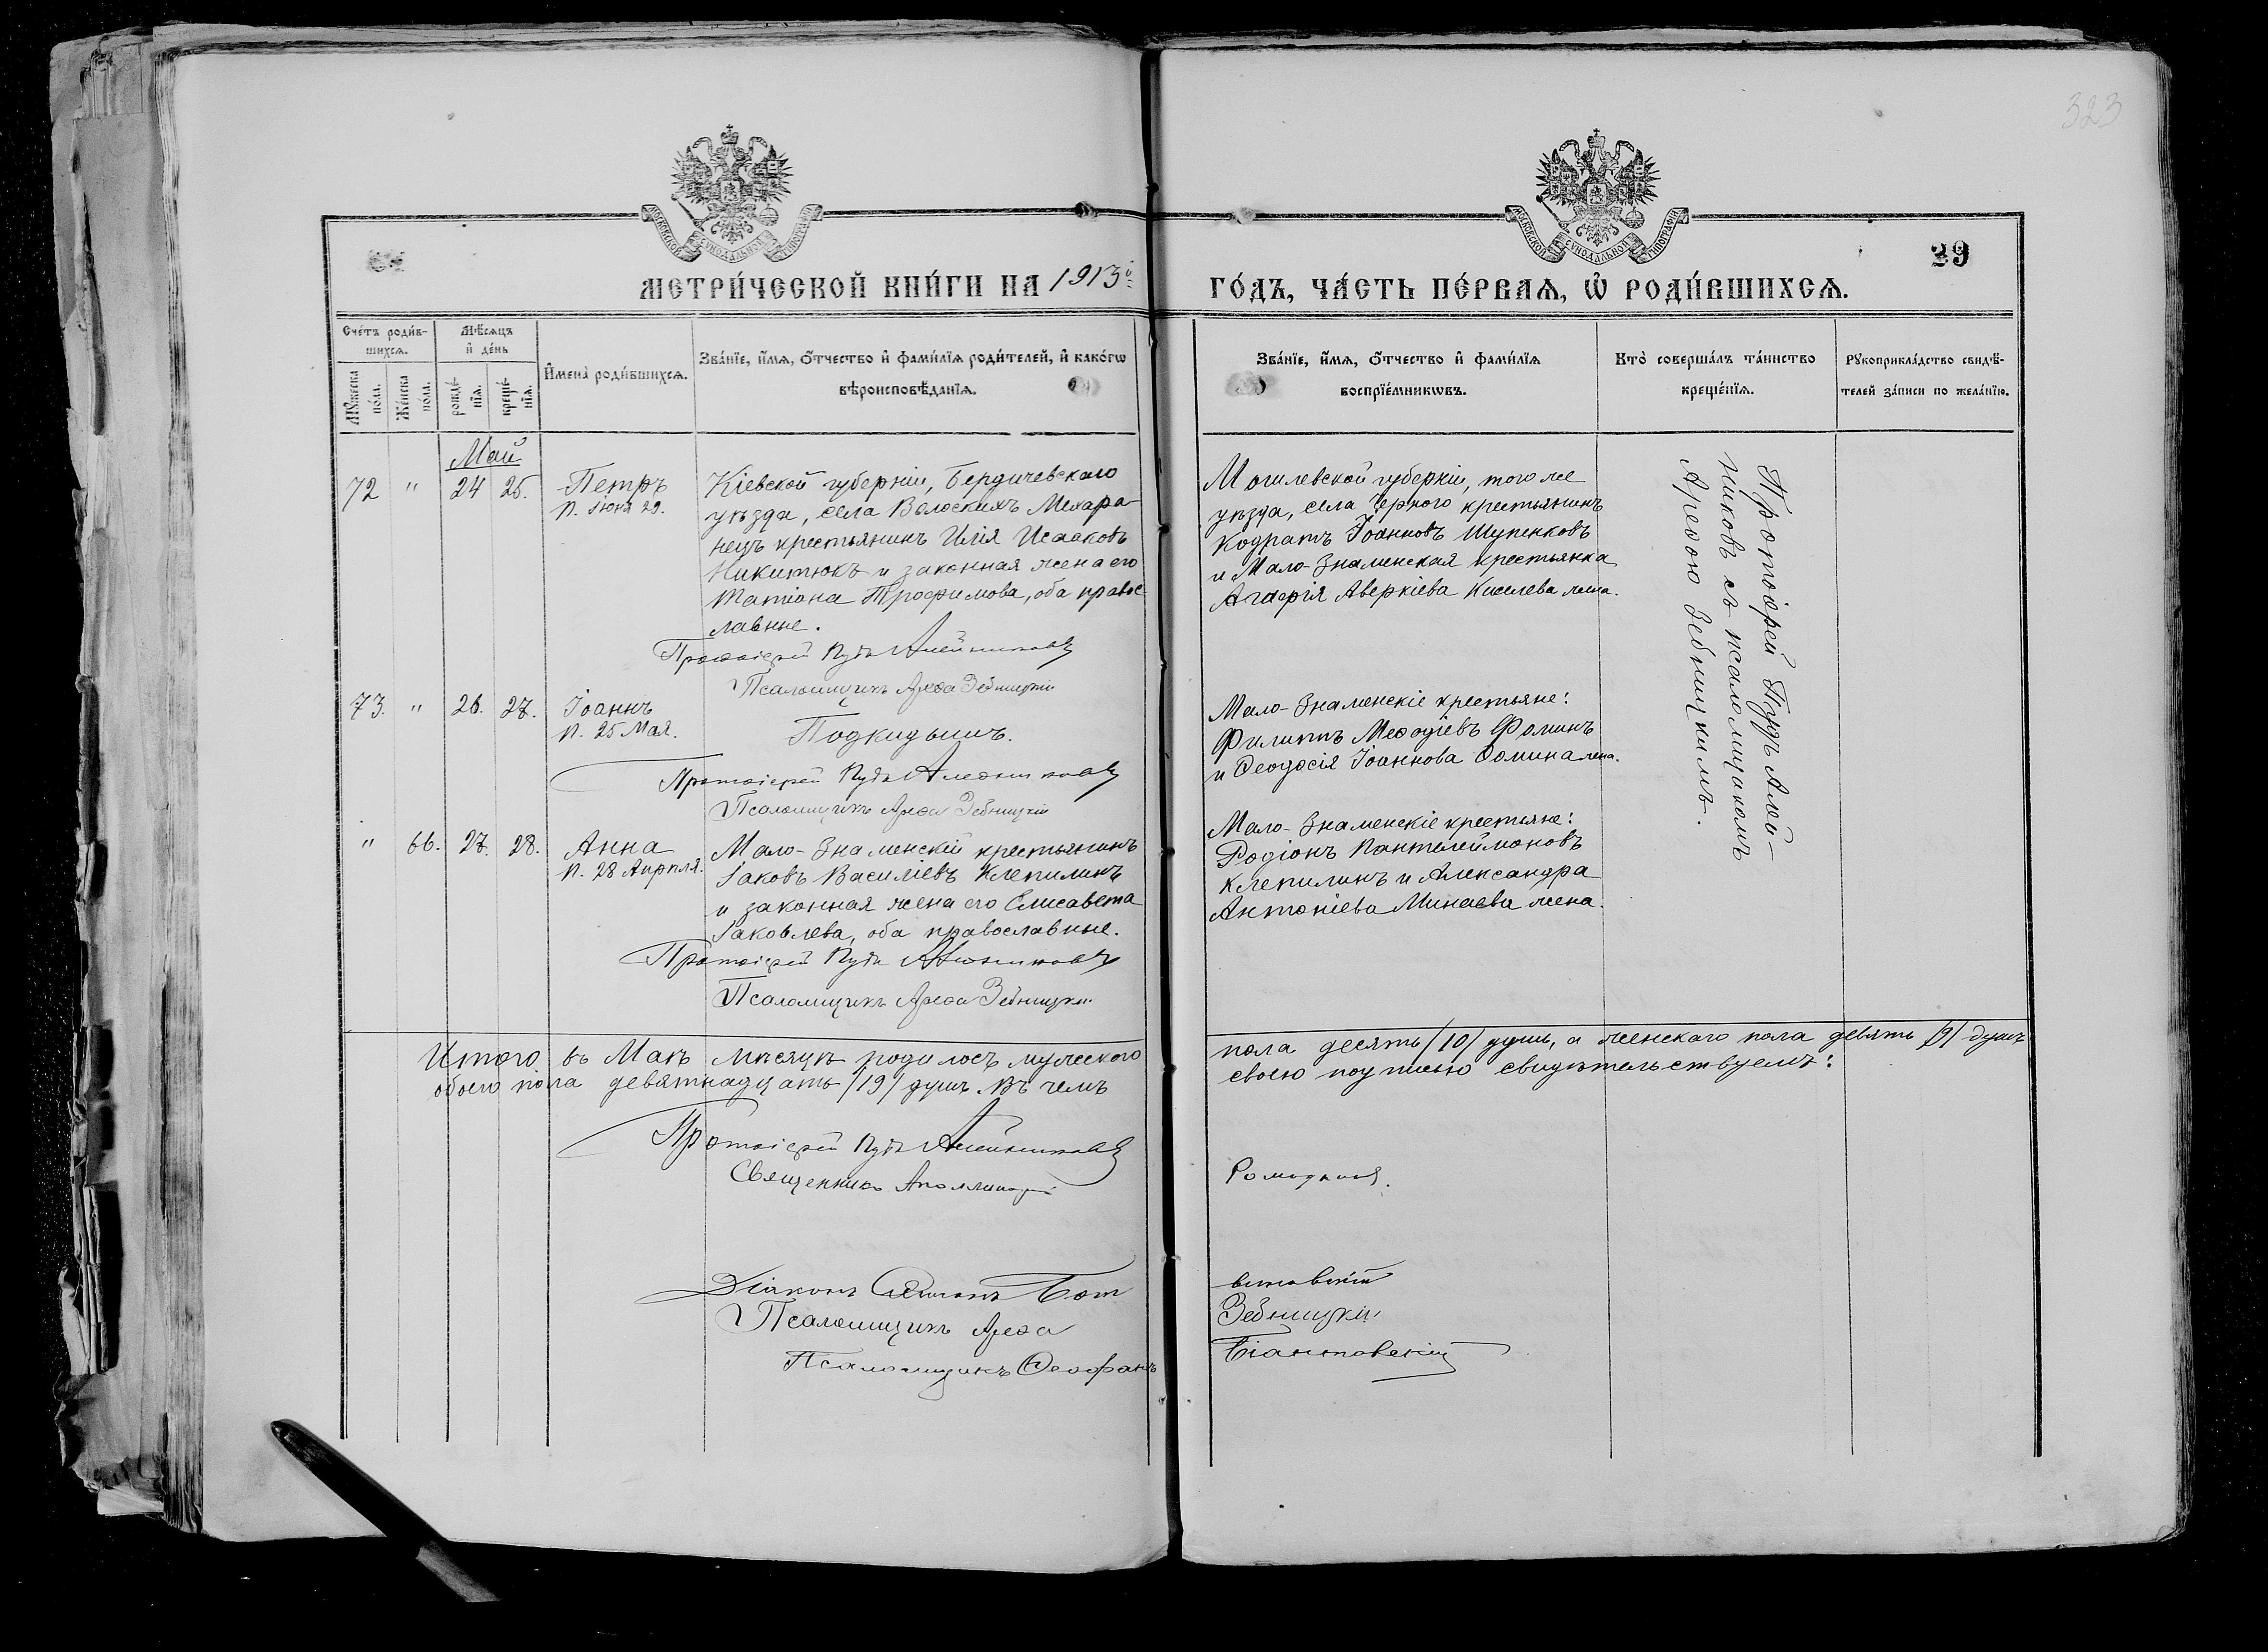 323
МОСКОВСКОЙ СѴНОДАЛЬНОЙ ТИПОГРАФІИ
МОСКОВСКОЙ СѴНОДАЛЬНОЙ ТИПОГРАФІИ
39
МЕТРИ́ЧЕСКОЙ КНИ́ГИ НА 1913й
ГО́ДЪ, ЧА́СТЬ ПЕ́РВАѦ, Ѡ҆ РОДИ́ВШИХСѦ.
Сче́тъ роди́в-
шихсѧ.
Мѣ́сѧцъ
и҆ де́нь
Мꙋ́жеска
по́ла.
Же́нска
по́ла.
рожде́-
нїѧ.
креще́-
нїѧ.
И҆мена̀ роди́вшихсѧ.
Зва́нїе, и҆́мѧ, ѻ҆́тчество и҆ фами́лїѧ роди́телей, и҆ како́гѡ
вѣроисповѣ́данїѧ.
Зва́нїе, и҆́мѧ, ѻ҆́тчество и҆ фами́лїѧ
воспрїе́мникѡвъ.
Кто̀ соверша́лъ та́инство
креще́нїѧ.
Рꙋкоприкла́дство свидѣ́-
телей за́писи по жела́нїю.
Май
72 " 24 25. Петръ
п. Iюня 29.
Кіевской губерніи, Бердичевскаго
уѣзда, села Волоскихъ Мехари-
нецъ крестьянинъ Илія Исааковъ
Никитюкъ и законная жена его
Татіана Трофимова, оба право-
славные.
Протоіерей Пудъ Алейниковъ
Псаломщикъ Арефа Зебницкій
Могилевской губерніи, того же
уѣзда, села Чернаго крестьянинъ
Кодратъ Іоанновъ Шупенковъ
и Мало-Знаменская крестьянка
Аверкіева Киселева жена.
Протоіерей Пудъ Алей-
никовъ съ псаломщикомъ
Арефою Зебницкимъ.
73. " 26. 27. Іоаннъ
п. 25 Мая.
Подкидышъ.
Протоіерей Пудъ Алейниковъ
Псаломщикъ Арефа Зебницкій
Мало-Знаменскіе крестьяне:
Филиппъ Меѳодіевъ Фоминъ
и Ѳеодосія Іоаннова Фомина жена.
" 66. 27. 28. Анна
п. 28 Апрѣля.
Мало-Знаменскій крестьянинъ
Іаковъ Василіевъ Клепилинъ
и законная жена его Елисавета
Іаковлева, оба православные.
Протоіерей Пудъ Алейниковъ
Псаломщикъ Арефа Зебницкій
Мало-Знаменскіе крестьяне:
Родіонъ Пантелеймоновъ
Клепилинъ и Александра
Антоніева Минаева жена.
Итого въ Маѣ мѣсяцѣ родилось мужескаго пола десять /10/ душъ, а женскаго пола девять /9/ душъ
обоего пола девятнадцать /19/ душъ. Въ чемъ своею подписью свидѣтельствуемъ:
Протоіерей Пудъ Алейниковъ
Священникъ Аполлинарій
Діаконъ Бот виновскій
Псаломщикъ Арефа Зебницкій
Псаломщикъ Ѳеофанъ Біантовскій